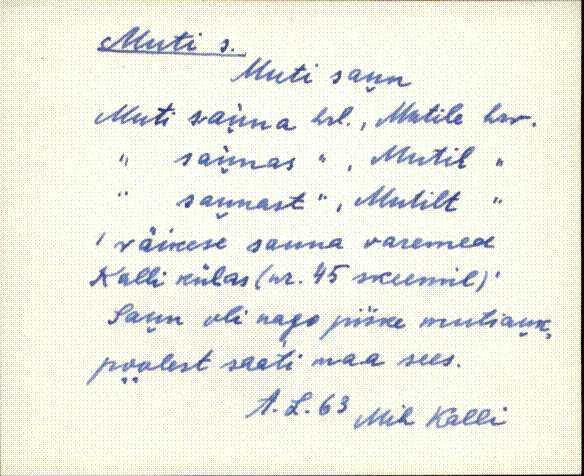 Muti s.
Muti sau̯n
Muti sau̯na hrl., Mutile hrv.
" sau̯nas ", Mutil "
" sau̯nast ", Mutilt "
' väikese sauna varemed
Kalli külas (nr. 45 skeemil)'
Sau̯n oli nago piske mutiau̯k,
poolest saati maa sees.
A. L. 63 Mih Kalli